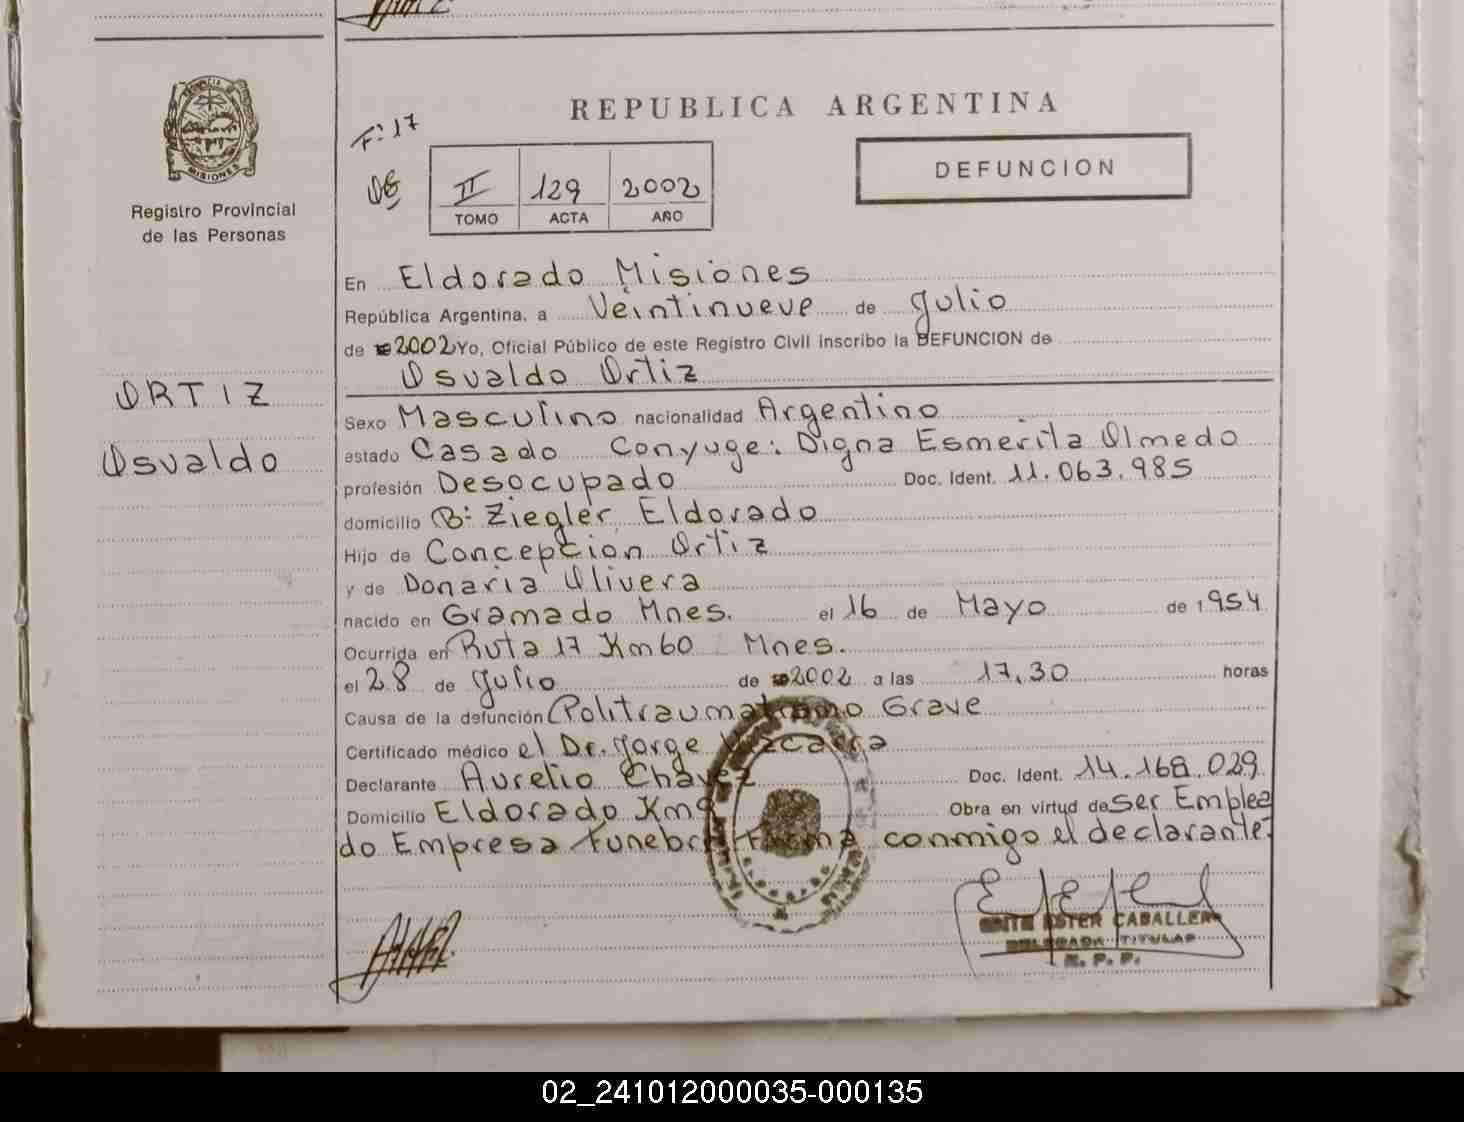 REPUBLICA ARGENTINA
DEFUNCION
Fº 17
II 129 2002
TOMO ACTA AÑO
PROVINCIA DE
MISIONES
Registro Provincial
de las Personas
ORTIZ
Osvaldo
En Eldorado Misiones
República Argentina, a Veintinueve de Julio
de 2002 Yo, Oficial Público de este Registro Civil inscribo la DEFUNCION de
Osvaldo Ortiz
Sexo Masculino nacionalidad Argentino
estado Casado Conyuge: Digna Esmerita Olmedo
profesión Desocupado Doc. Ident. 11.063.985
domicilio Bº Ziegler Eldorado
Hijo de Concepción Ortiz
y de Donaria Olivera
nacido en Gramado Mnes. el 16 de Mayo de 1954
Ocurrida en Ruta 17 Km 60 Mnes.
el 28 de Julio de 2002 a las 17.30 horas
Causa de la defunción Politraumatismo Grave
Certificado médico el Dr. Jorge
Declarante Aurelio Chavez Doc. Ident. 14.168.029
Domicilio Eldorado Km 9 Obra en virtud de ser Emplea
do Empresa funebre Firma conmigo el declarante.
ESTER CABALLERO
DELEGADA TITULAR
R. P. P.
02_241012000035-000135